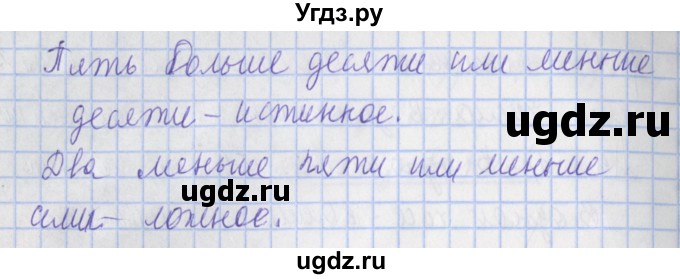 Угдз.ру
Пять больше десяти или меньше
десяти – истинное.
ugdz.ru
Два меньше пяти или меньше
ugdz.ru
– ложное.
ugdz.ru